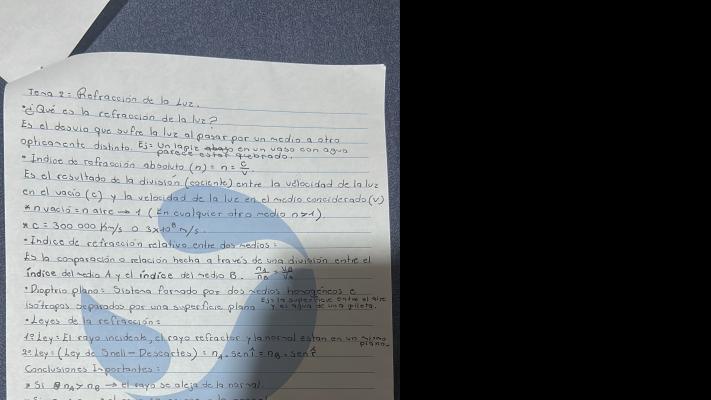 Tema 2: Refracción de la Luz.
•¿Qué es la refracción de la luz?
Es el desvio que sufre la luz al pasar por un medio a otro
opticamente distinto. Ej: Un lapiz en un vaso con agua
parece estar quebrado.
• Indice de refracción absoluto (n) = n = c/v.
Es el resultado de la división (cociente) entre la velocidad de la luz
en el vacío (c) y la velocidad de la luz en el medio considerado (v)
* n vacio = n aire → 1 (En cualquier otro medio n>1).
* c = 300 000 Km/s o 3x10⁸ m/s.
• Indice de refracción relativo entre dos medios:
Es la comparación o relación hecha a través de una división entre el
índice del medio A y el índice del medio B. nA/nB = vB/vA
• Dioptrio plano: Sistema formado por dos medios homogéneos e
isótropos separados por una superficie plana Ej: la superficie entre el aire
y el agua de una pileta.
• Leyes de la refracción:
1º Ley: El rayo incidente, el rayo refractor y la normal estan en un mismo
plano.
2º Ley: (Ley de Snell - Descartes) = nA. sen î = nB. sen r̂
Conclusiones Importantes:
* Si nA > nB → el rayo se aleja de la normal.